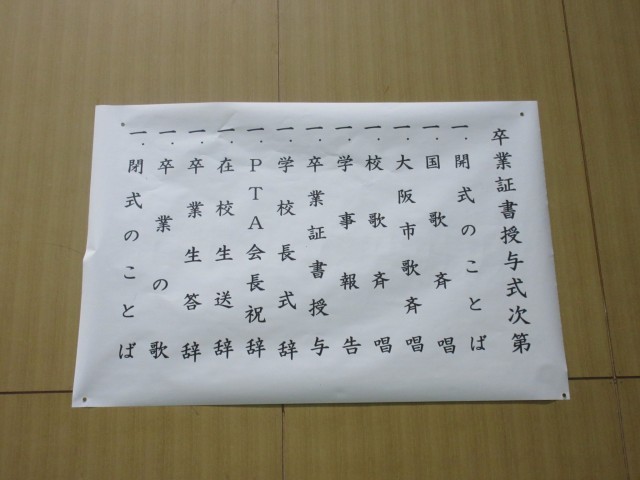 卒業証書授与式次第
一.開式のことば
一.国歌斉唱
一.大阪市歌斉唱
一.校歌斉唱
一.学事報告
一.卒業証書授与
一.学校長式辞
一.PTA会長祝辞
一.在校生送辞
一.卒業生答辞
一.卒業の歌
一.閉式のことば